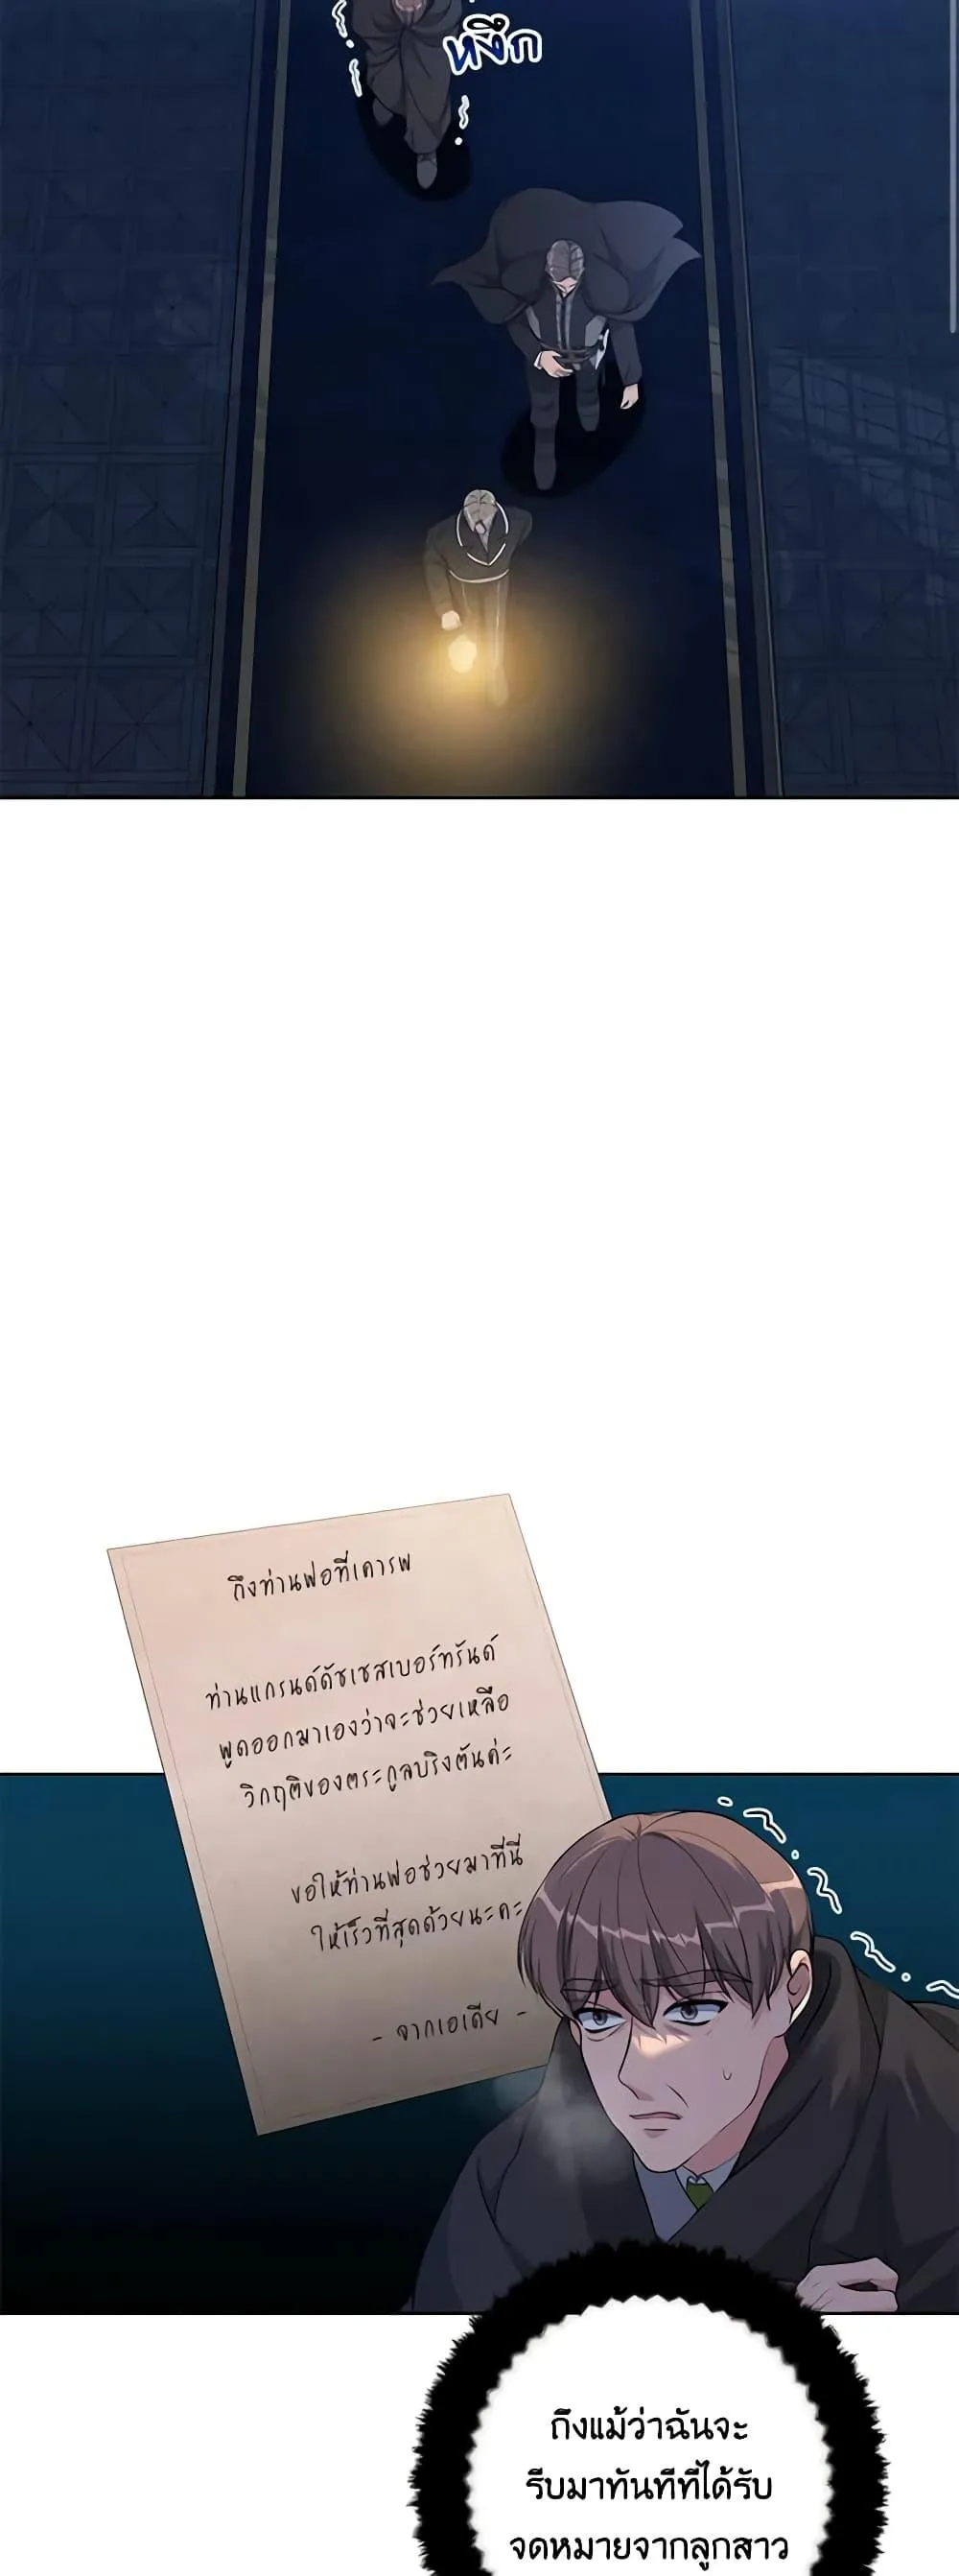 หงึก
ถึงท่านพ่อที่เคารพ
ท่านแกรนด์ดัชเชสเบอร์ทรันด์
พูดออกมาเองว่าจะช่วยเหลือ
วิกฤติของตระกูลบริงตันค่ะ
ขอให้ท่านพ่อช่วยมาที่นี่
ให้เร็วที่สุดด้วยนะคะ
- จากเอเดีย -
ถึงแม้ว่าฉันจะ
รีบมาทันทีที่ได้รับ
จดหมายจากลูกสาว